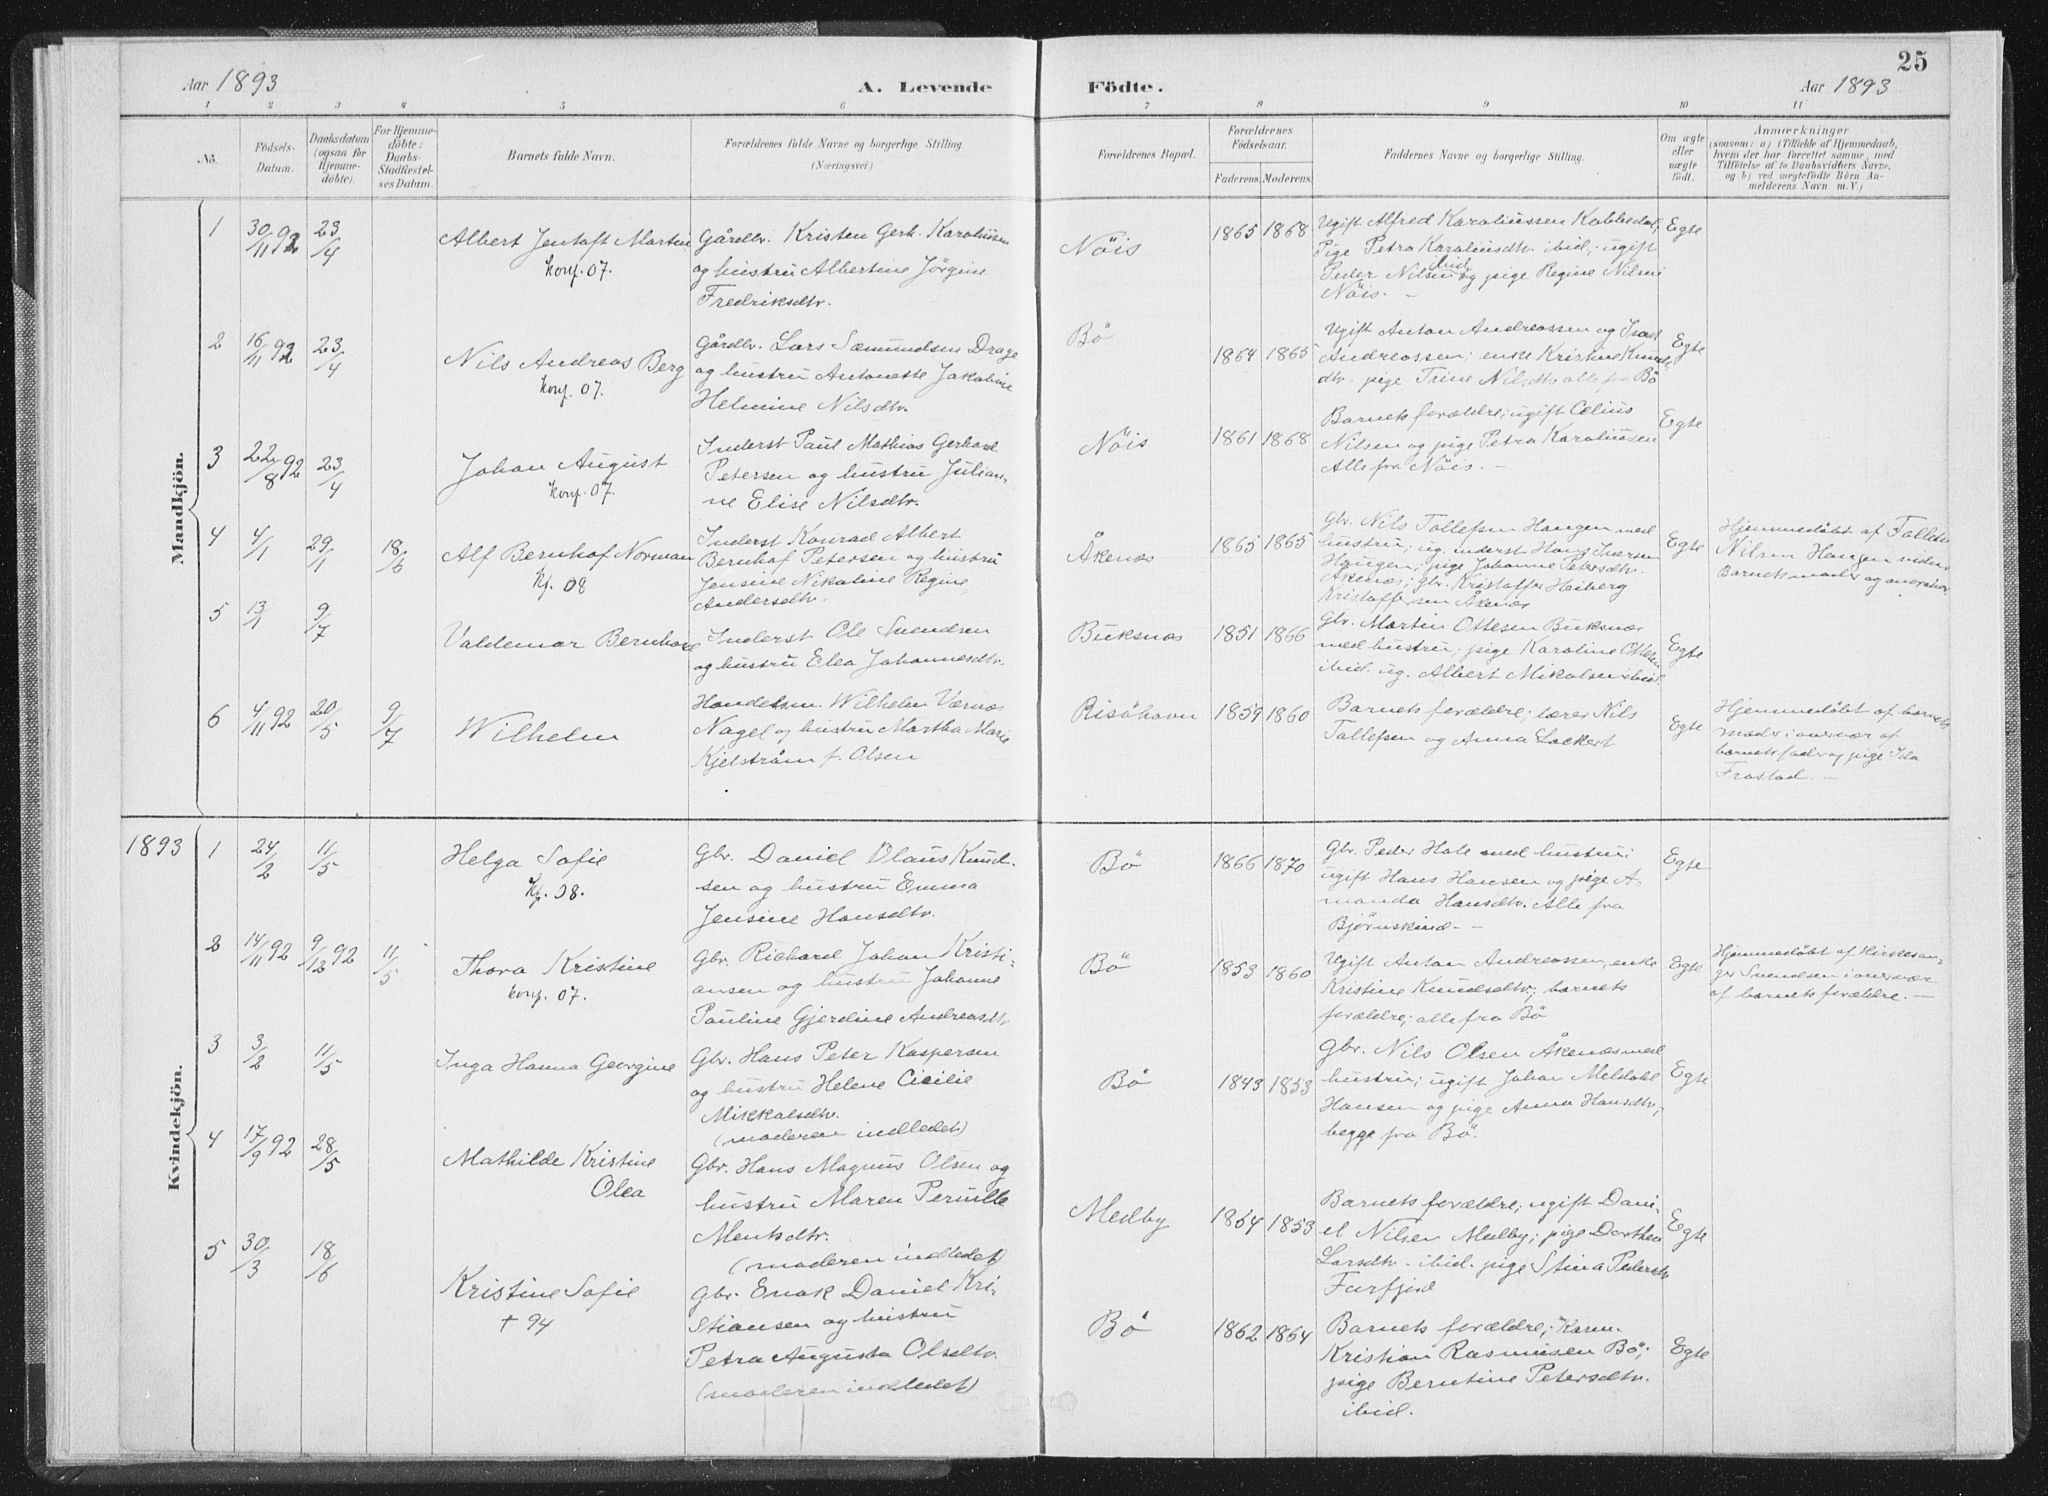 25
Aar 1893
A. Levende Födte.
Aar 1893
1 2 3 4 5 6 7 8 9 10 11
No.
Födsels-
Datum.
Daabsdatum
(ogsaa for
Hjemme-
döbte).
For Hjemme-
döbte:
Daabs-
Stadfæstel-
ses Datum.
Barnets fulde Navn.
Forældrenes fulde Navne og borgerlige Stilling.
(Næringsvei.)
Forældrenes Bopæl.
Forældrenes
Födselsaar.
Faderens. Moderens.
Faddernes Navne og borgerlige Stilling.
Om ægte
eller
uægte
födt.
Anmærkninger
(saasom: a) i Tilfælde af Hjemmedaab,
hvem der har forrettet samme, med
Tilföielse af to Daabsvidners Navne,
og b) ved uægtefödte Börn, An-
melderens Navn m. V.)
Mandkjön.
1 30/11 92 23/4
Albert Jentoft Martin
konf. 07.
Gårdbr. Kristen Gerh. Karoliussen
og hustru Albertine Jørgine
Fredriksdtr.
Nöis
1865 1868
Ugift Alfred Karoliussen Kobbedal,
Pige Petra Karoliusdtr. ibid.; ugift
Peder Nilsen ibid. og pige Regine Nilsen
Nöis. –
Egte
2 16/11 92 23/4
Nils Andreas Berg
konf. 07.
Gårdbr. Lars Sæmundsen Drage
og hustru Antonette Jakobine
Helmine Nilsdtr.
Bö
1864 1865
Ugift Anton Andreassen og Isak
Andreassen; enke Kristine Knuds-
dtr. pige Trine Nilsdtr alle fra Bö
Egte
3 22/8 92 23/4
Johan August
konf. 07.
Inderst Paul Mathias Gerhard
Petersen og hustru Julian-
ne Elise Nilsdtr.
Nöis
1861 1868
Barnets forældre; ugift Celius
Nilsen og pige Petra Karoliussen
Alle fra Nöis. –
Egte
4 4/1 29/1 18/6
Alf Bernhof Norman
kf. 08
Inderst Konrad Albert
Bernhof Petersen og hustru
Jensine Nikoline Regine
Andersdtr.
Åkenæs
1865 1865
Gbr. Nils Tollefsen Haugen med
hustru; ug. inderst Hans Iversen
Haugen; pige Johanne Petersdtr.
Åkenæs; gbr. Kristoffer Heiberg
Kristoffersen Åkenæs
Egte
Hjemmedöbt af Tollef
Nilsen Haugen
Barnets moder og
5 13/1 9/7
Valdemar Bernhard
Inderst Ole Svendsen
og hustru Elea Johannesdtr.
Buksnæs
1851 1866
Gbr. Martin Ottesen Buksnæs
med hustru; pige Karoline Ottesen
ibid. ug. Albert Mikalsen ibid.
Egte
6 4/11 92 20/5 9/7
Wilhelm
Handelsm. Wilhelm Værnes
Nagel og hustru Martha Marie
Kjelstråm f. Olsen
Risöhavn
1859 1860
Barnets forældre; lærer Nils
Tollefsen og Anna Lockert
Egte
Hjemmedöbt af barnets
moder i overvær af
barnets fader og pige Ida
Frostad. –
1893
Kvindekjön.
1 24/2 11/5
Helga Sofie
kf. 08.
Gbr. Daniel Olaus Knud-
sen og hustru Emma
Jensine Hansdtr.
Bö
1866 1870
Gbr. Peder Hole med hustru;
ugift Hans Hansen og pige A-
manda Hansdtr. Alle fra
Bjørnskind. –
Egte
2 14/11 92 9/12 92 11/5
Thora Kristine
konf. 07.
Gbr. Richard Johan Kristi-
ansen og hustru Johanne
Pauline Gjerdine Andreasdtr
Bö
1853 1860
Ugift Anton Andreassen, enke
Kristine Knudsdtr.; barnets
forældre; alle fra Bö
Egte
Hjemmedöbt af Kirkesan-
ger Svendsen i overvær
af barnets forældre. –
3 3/2 11/5
Inga Hanna Georgine
Gbr. Hans Peter Kaspersen
og hustru Helene Cicilie
Mikkalsdtr.
(moderen indledet)
Bö
1843 1853
Gbr. Nils Olsen Åkenæs med
hustru; ugift Johan Meldahl
Hansen og pige Anna Hansdtr;
begge fra Bö.
Egte
4 17/9 92 28/5
Mathilde Kristine
Olea
Gbr. Hans Magnus Olsen og
hustru Maren Pernille
Mentsdtr.
(moderen indledet)
Medby
1854 1853
Barnets forældre; ugift Dani-
el Nilsen Medby; pige Dorthea
Larsdtr. ibid. pige Stina Pedersdtr
Forfjord
Egte
5 30/3 18/6
Kristine Sofie
+ 94
Gbr. Enok Daniel Kri-
stiansen og hustru
Petra Augusta Olsdtr.
(moderen indledet)
Bö
1862 1864
Barnets forældre;
Kristian Rasmusen Bö;
pige Berntine Petersdtr.
ibid.
Egte